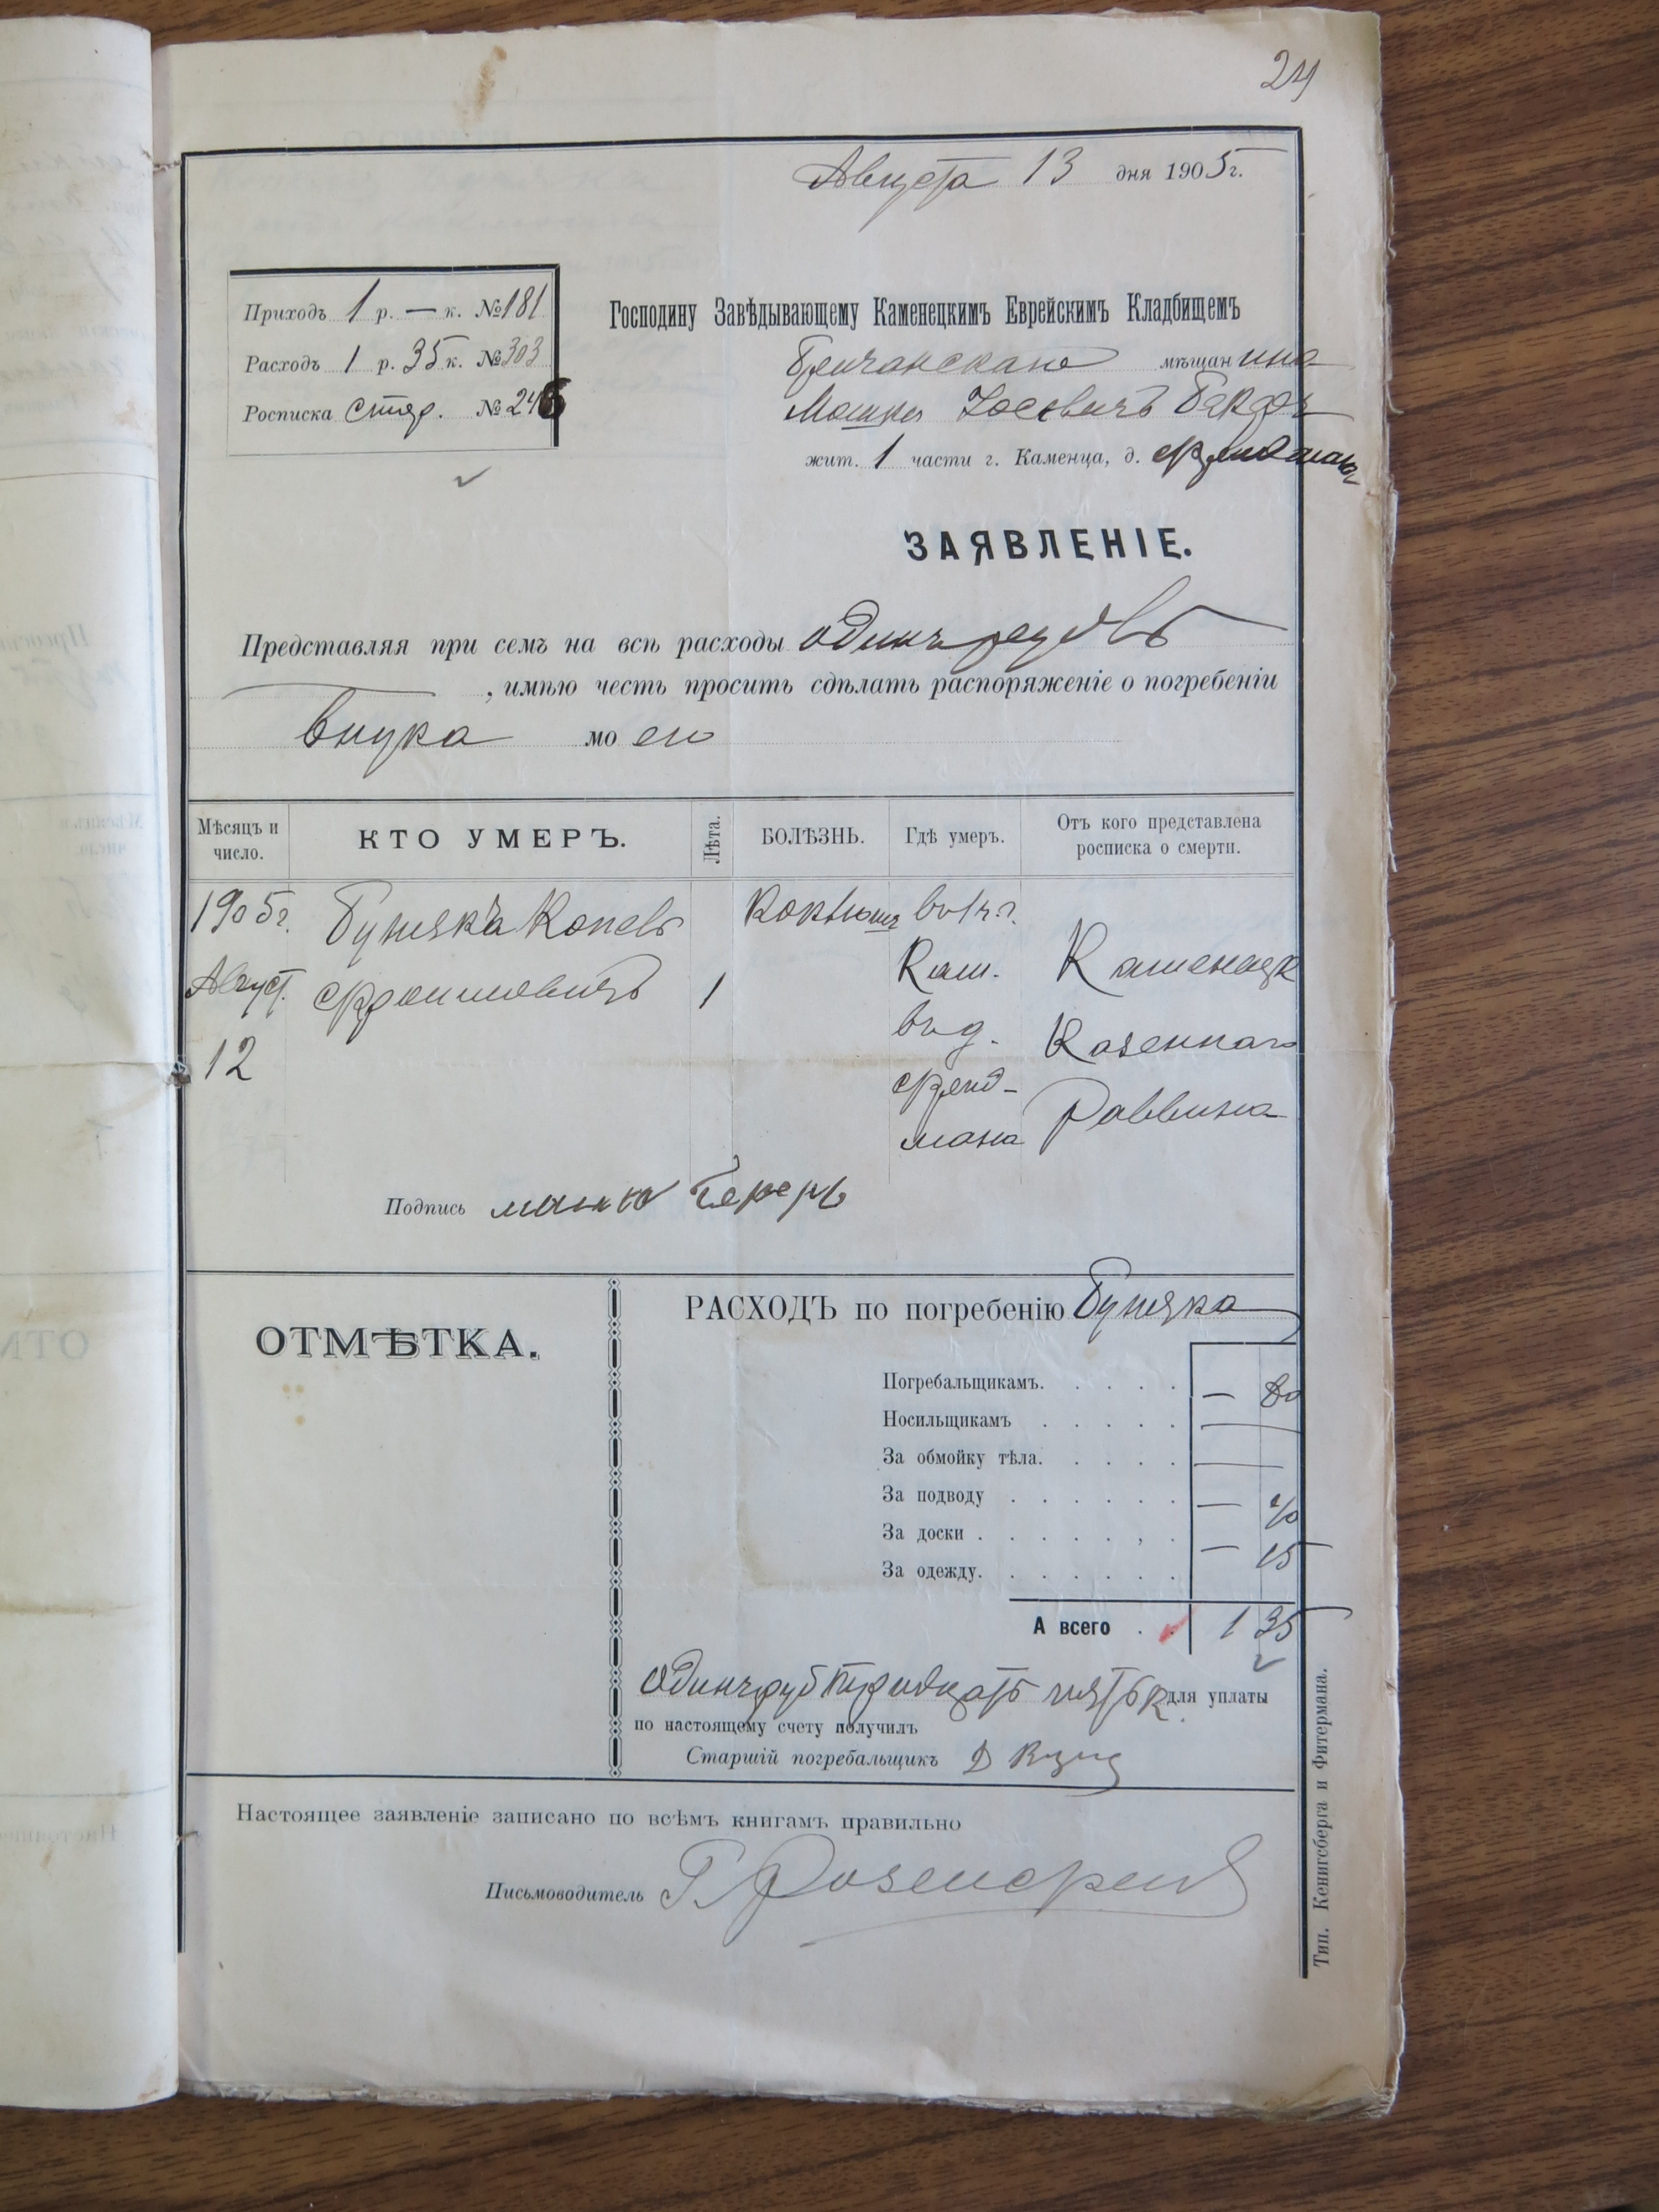 24
Августа 13 дня 1905 г.
Приходъ 1 р. — к. № 181
Расходъ 1 р. 35 к. № 303
Росписка стар. №
Господину Завѣдывающему Каменецкимъ Еврейскимъ Кладбищемъ
Бричанскаго мѣщанина
Мошко Іосевичъ
жит. 1 части г. Каменца, д. Фридмана
ЗАЯВЛЕНІЕ.
Представляя при семъ на всѣ расходы одинъ рубль
, имѣю честь просить сдѣлать распоряженіе о погребеніи
внука моего
Мѣсяцъ и число.
КТО УМЕРЪ.
Лѣта.
БОЛѢЗНЬ.
Гдѣ умеръ.
Отъ кого представлена росписка о смерти.
1905 г. Бутяка Копель Коклюшъ въ 1 ч. г.
Август. Фроимовичъ 1 Кам. Каменецк
12 въ д. Казеннаго
Фрид-
мана Раввина
Подпись
РАСХОДЪ по погребенію Бутяка
ОТМѢТКА.
Погребальщикамъ. — 80
Носильщикамъ —
За обмойку тѣла. —
За подводу — 40
За доски — 15
За одежду.
А всего 1 35
Одинъ руб тридцать пять к. для уплаты
по настоящему счету получилъ
Старшій погребальщикъ Д
Настоящее заявленіе записано по всѣмъ книгамъ правильно
Письмоводитель Г. Розенфельд
Тип. Кенигсберга и Фитермана.